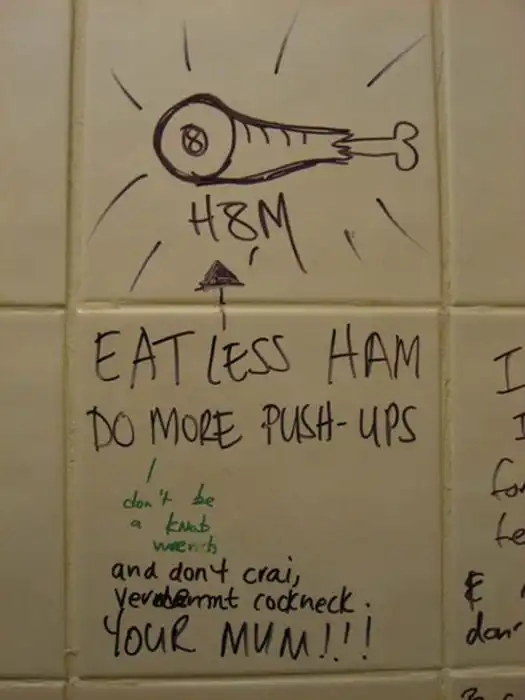 8
H8M
EAT LESS HAM
DO MORE PUSH-UPS
don't be
a knob
wrench
and don't crai,
cockneck.
YOUR MUM!!!
I
I
fo
te
& 
don'